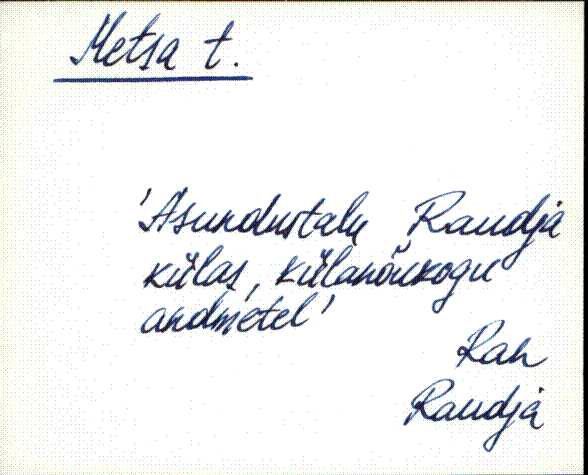 Metsa t.
'Asundustalu Raudja
külas, külanõukogu
andmetel'
Rah
Raudja